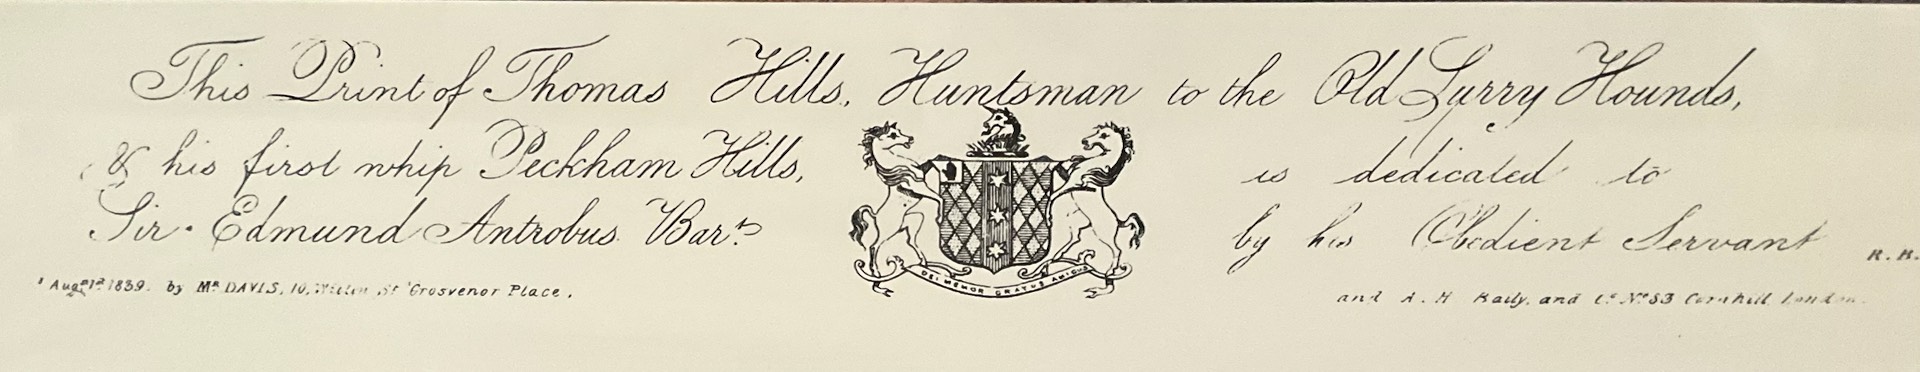 This Print of Thomas Hills, Huntsman to the Old Surry Hounds,
& his first whip Peckham Hills, is dedicated to
Sir Edmund Antrobus Bart. by his Obedient Servant R. B.
DEI MEMOR GRATUS AMICIS
Augst 1st 1839. by Mr DAVIS, 10, Wilton St Grosvenor Place, and A. H. Baily, and Co. No. 83 Cornhill, London.